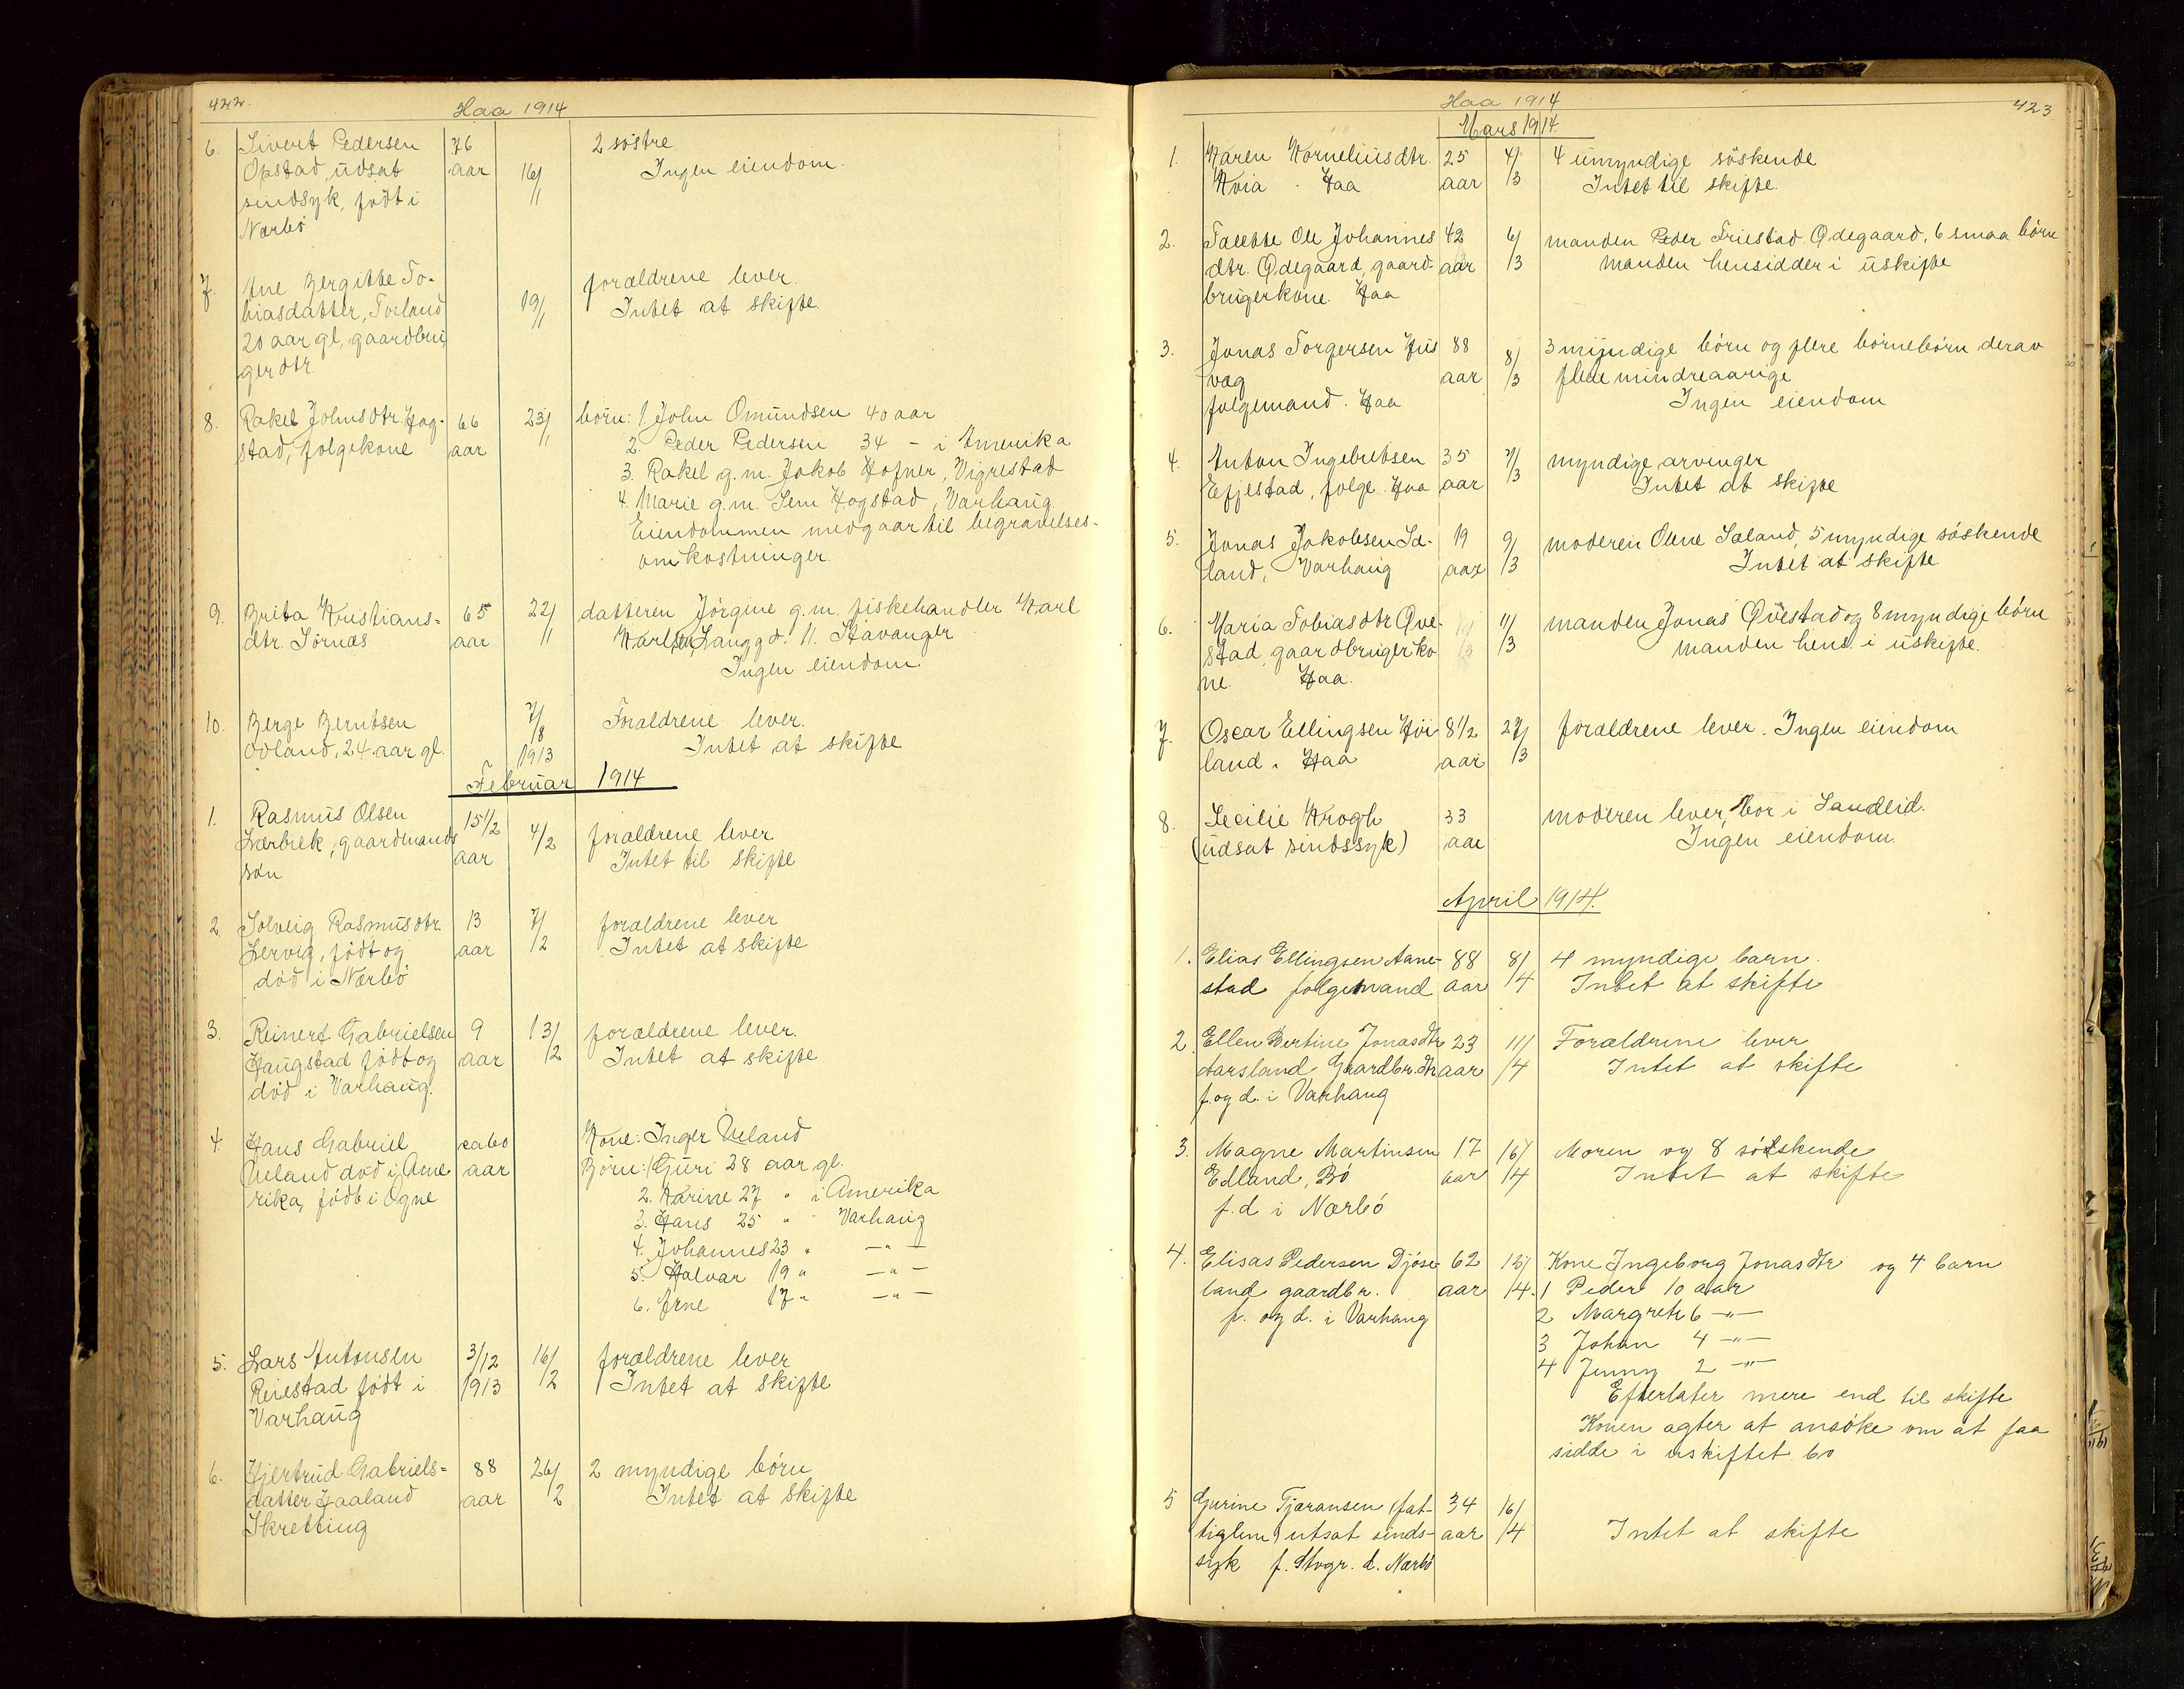 422.
Haa 1914
6. Sivert Pedersen 76 2 søstre
Opstad, udsat aar 16/1 Ingen eiendom.
sindsyk, født i
Nærbø
7. Ane Bergitte To- forældrene lever.
biasdatter, Torland 19/1 Intet at skifte
20 aar gl, gaardbru-
gerdtr.
8. Rakel Johnsdtr. Hog- 66 23/1 børn: 1. John Omundsen 40 aar
stad, følgekone aar 2. Peder Pedersen 34 – i Amerika
3. Rakel g.m. Jakob Hofner, Vigrestad
4. Marie g.m. Sem Hogstad, Varhaug.
Eiendommen medgaar til begravelses-
omkostninger.
9. Brita Kristians- 65 22/1 datteren Jörgine g.m. fiskehandler Karl
dtr. Sörnæs aar Karlsen, Langgd. 11. Stavanger
Ingen eiendom.
10. Berge Berntsen 7/8 Forældrene lever.
Odland, 24 aar gl. 1913 Intet at skifte
Februar 1914
1. Rasmus Olsen 15 1/2 4/2 forældrene lever
Lerbrek, gaardmands aar Intet til skifte
søn
2. Solveig Rasmusdtr. 13 7/2 forældrene lever
Lervig, født og aar Intet at skifte
død i Nærbø
3. Reinert Gabrielsen 9 13/2 forældrene lever.
Haugstad født og aar Intet at skifte
død i Varhaug.
4. Hans Gabriel ca 60 Kone: Inger Ueland
Ueland død i Ame- aar Børn: 1 Guri 28 aar gl.
rika, født i Ogne 2. Karine 27 " i Amerika
3. Hans 25 " " Varhaug
4. Johannes 23 " –"–
5. Halvar 19 " –"–
6. Arne 17 " –"–
5. Lars Antonsen 3/12 16/2 forældrene lever
Reiestad født i 1913 Intet at skifte
Varhaug
6. Hjertrud Gabriels- 88 26/2 2 myndige børn
datter Haaland aar Intet at skifte
Skretting
Haa 1914
423
Mars 1914.
1. Karen Korneliusdtr. 25 4/3 4 umyndige søskende
Kvia. Haa aar Intet til skifte.
2. Talette Ole Johannes 42 6/3 manden Peder Friestad Ødegaard, 6 smaa børn
dtr. Ødegaard, gaard- aar manden hensidder i uskifte
brugerkone. Haa
3. Jonas Torgersen Hus 88 8/3 3 myndige børn og flere børnebørn derav
væg aar flere mindreaarige
folgemand. Haa Ingen eiendom
4. Anton Ingebretsen 35 7/3 myndige arvinger
Efjestad, følge. Haa aar Intet at skifte
5. Jonas Jakobsen Sæ- 19 9/3 moderen Olene Sæland, 5 myndige søskende
land, Varhaug aar Intet at skifte
6. Maria Tobiasdtr Qve- 11/3 manden Jonas Qvestad og 8 myndige børn
stad, gaardbrugerko manden hens. i uskifte.
ne. Haa.
7. Oscar Ellingsen Høi 8 1/2 27/3 forældrene lever. Ingen eiendom
land. Haa aar
8. Secilie Krogh 33 moderen lever, bor i Sandeid.
(udsat sindssyk) aar Ingen eiendom.
April 1914.
1. Elias Ellingsen Aane- 88 8/4 4 myndige barn.
stad følgemand aar Intet at skifte
2. Ellen Bertine Jonasdtr 23 11/4 Forældrene lever
Aarsland Gaardbr.dtr aar Intet at skifte
f. og d. i Varhaug
3. Magne Martinsen 17 16/4 Moren og 8 søskende
Edland, Bø aar Intet at skifte
f.d i Nærbø
4. Elisas Pedersen Djøse- 62 12/4 Kone Ingeborg Jonasdtr og 4 barn
land gaardbr. aar 1 Peder 10 aar
f. og d. i Varhaug 2 Margrete 6 –"–
3 Johan 4 –"–
4 Jenny 2 –"–
Efterlater mere end til skifte
Konen agter at ansøke om at faa
sidde i uskiftet bo
5 Gurine Tjæransen (fat- 34 16/4
tiglem) utsat sinds- aar Intet at skifte
syk f. Stvgr. d. Nærbø